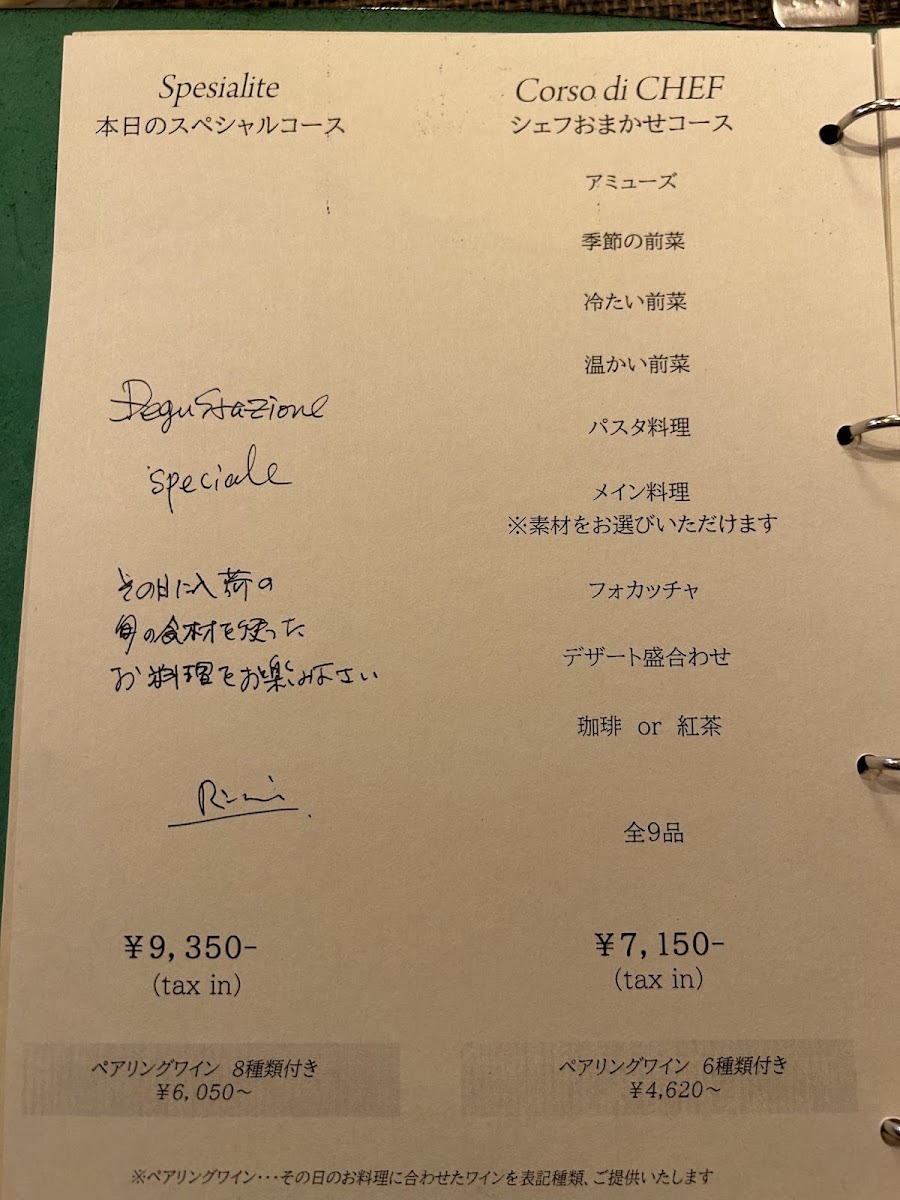 Spesialite
本日のスペシャルコース
Degustazione
speciale
その日に入荷の
旬の食材を使った
お料理をお楽しみ下さい
Rimi
¥9,350-
(tax in)
ペアリングワイン 8種類付き
¥6,050～
Corso di CHEF
シェフおまかせコース
アミューズ
季節の前菜
冷たい前菜
温かい前菜
パスタ料理
メイン料理
※素材をお選びいただけます
フォカッチャ
デザート盛合わせ
珈琲 or 紅茶
全9品
¥7,150-
(tax in)
ペアリングワイン 6種類付き
¥4,620～
※ペアリングワイン･･･その日のお料理に合わせたワインを表記種類、ご提供いたします